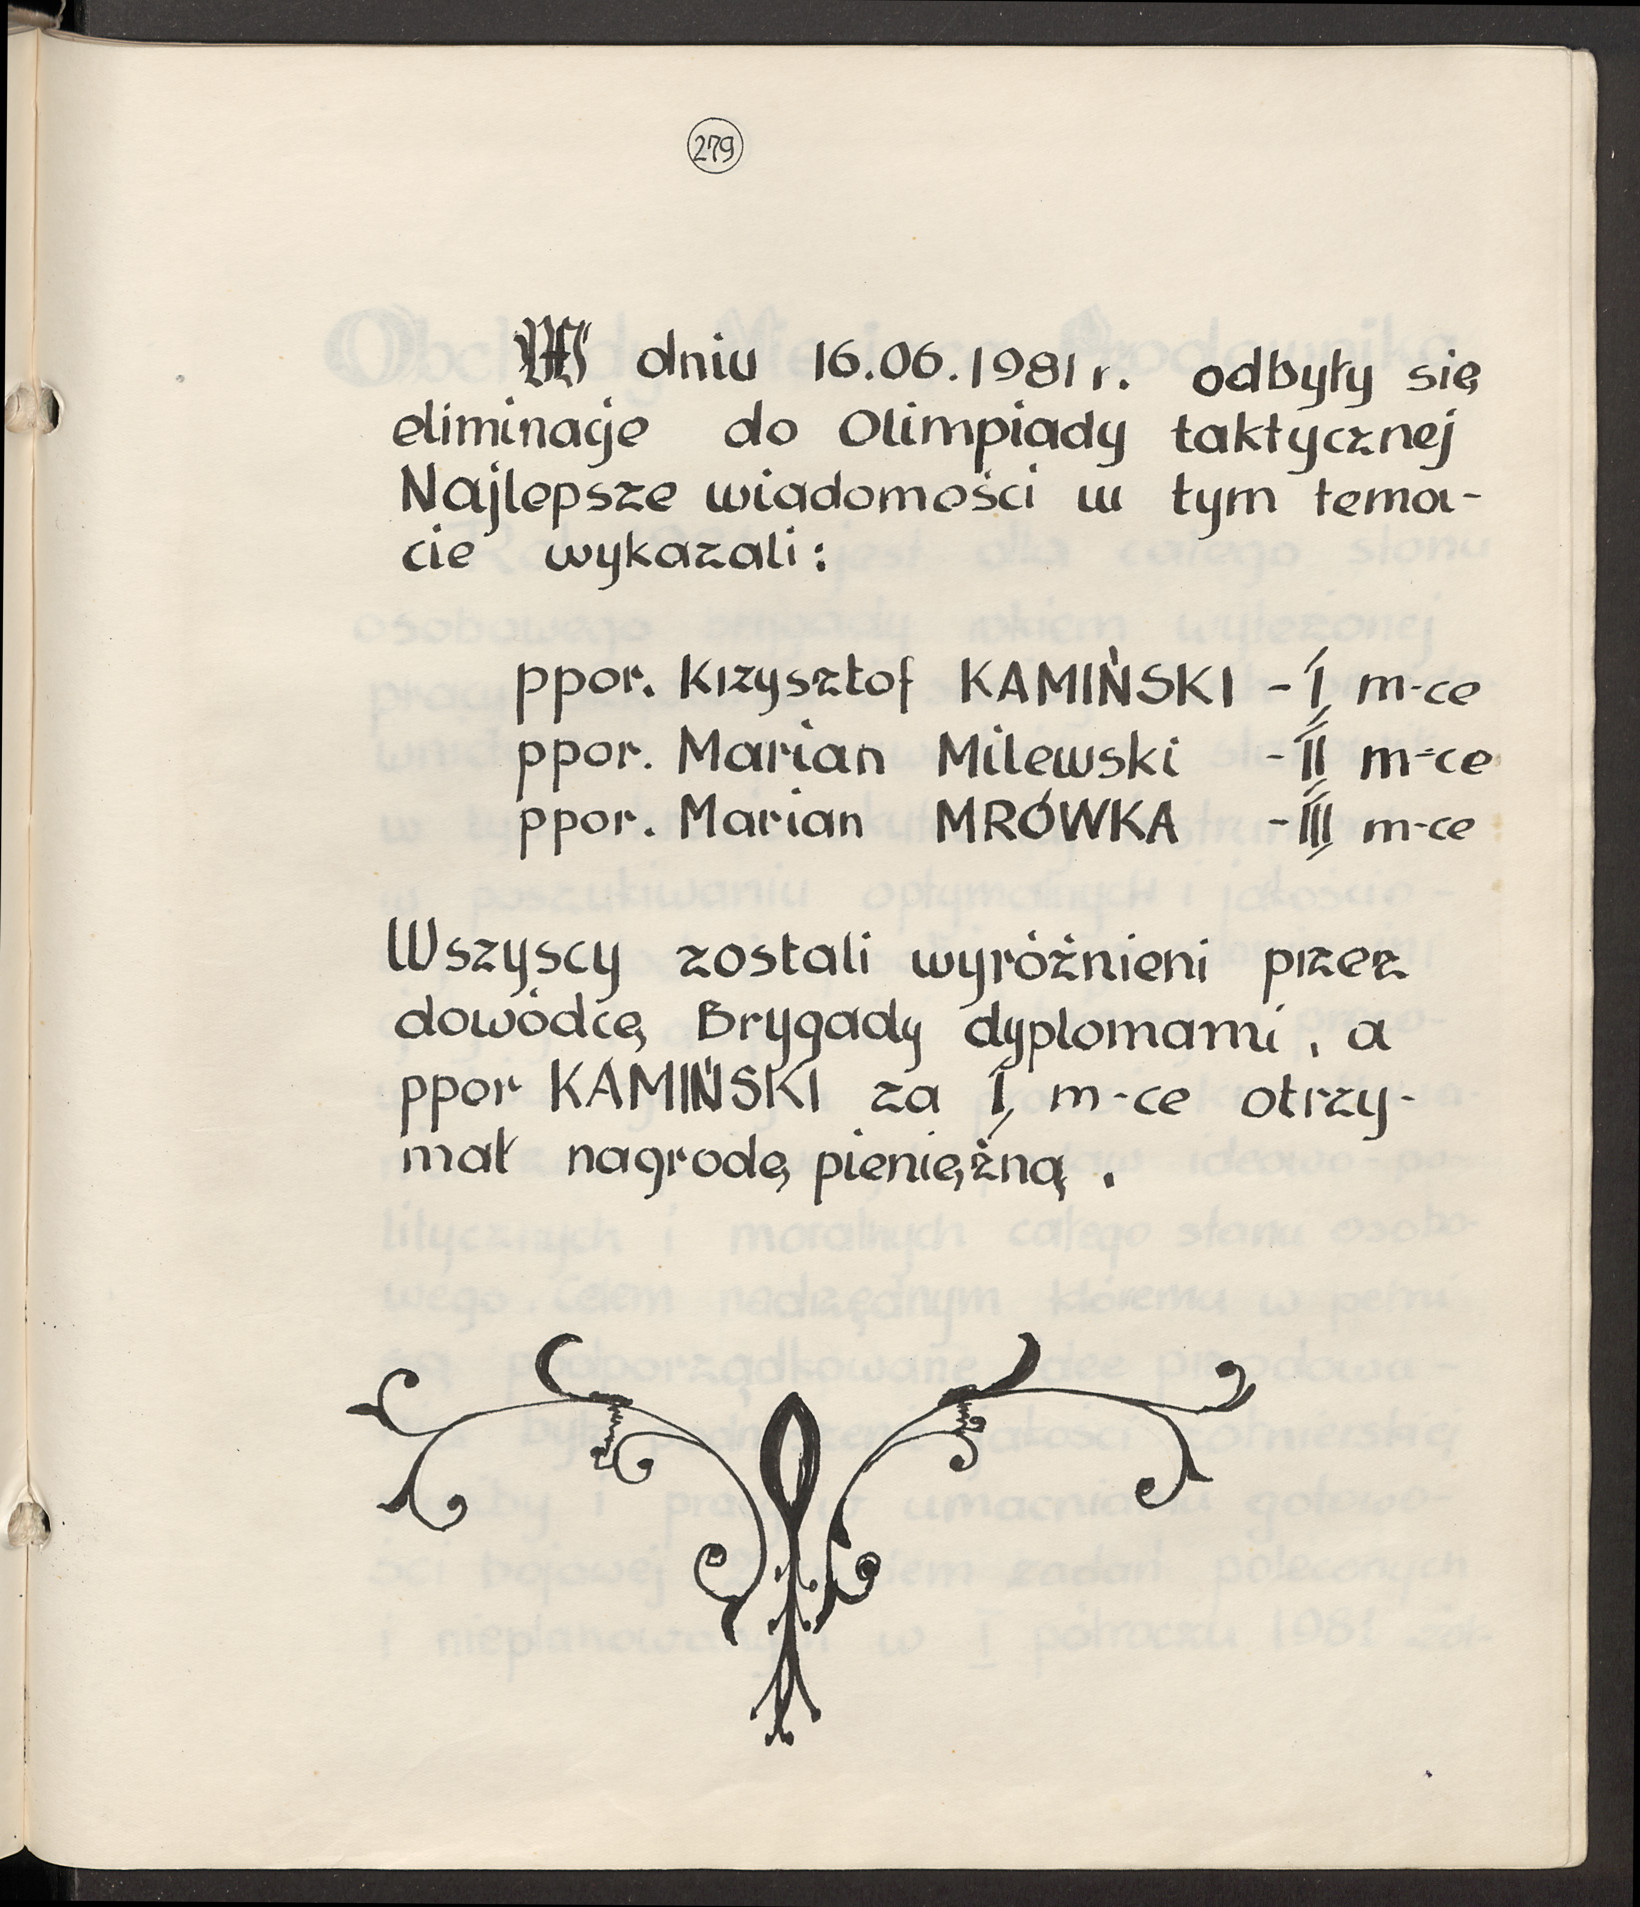 279
W dniu 16.06.1981 r. odbyły się
eliminacje do Olimpiady taktycznej
Najlepsze wiadomości w tym tema-
cie wykazali:
ppor. Krzysztof KAMIŃSKI - I m-ce
ppor. Marian Milewski - II m-ce
ppor. Marian MRÓWKA - III m-ce
Wszyscy zostali wyróżnieni przez
dowódcę Brygady dyplomami, a
ppor KAMIŃSKI za I m-ce otrzy-
mał nagrodę pieniężną.